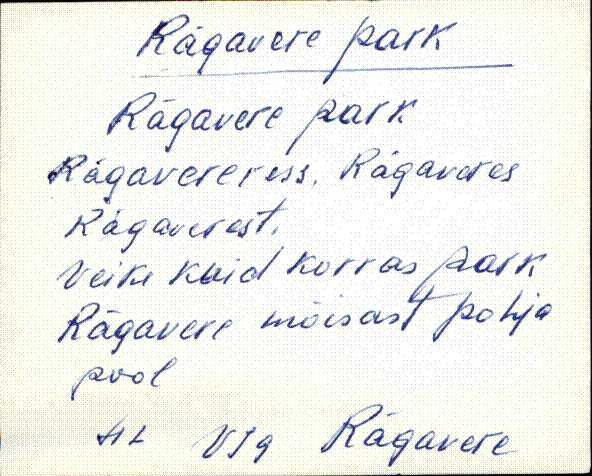 Rägavere park
Rägavere park
Rägaveresse, Rägaveres
Rägaverest.
Veike kuid korras park
Rägavere mõisast põhja
pool
HL VJg Rägavere